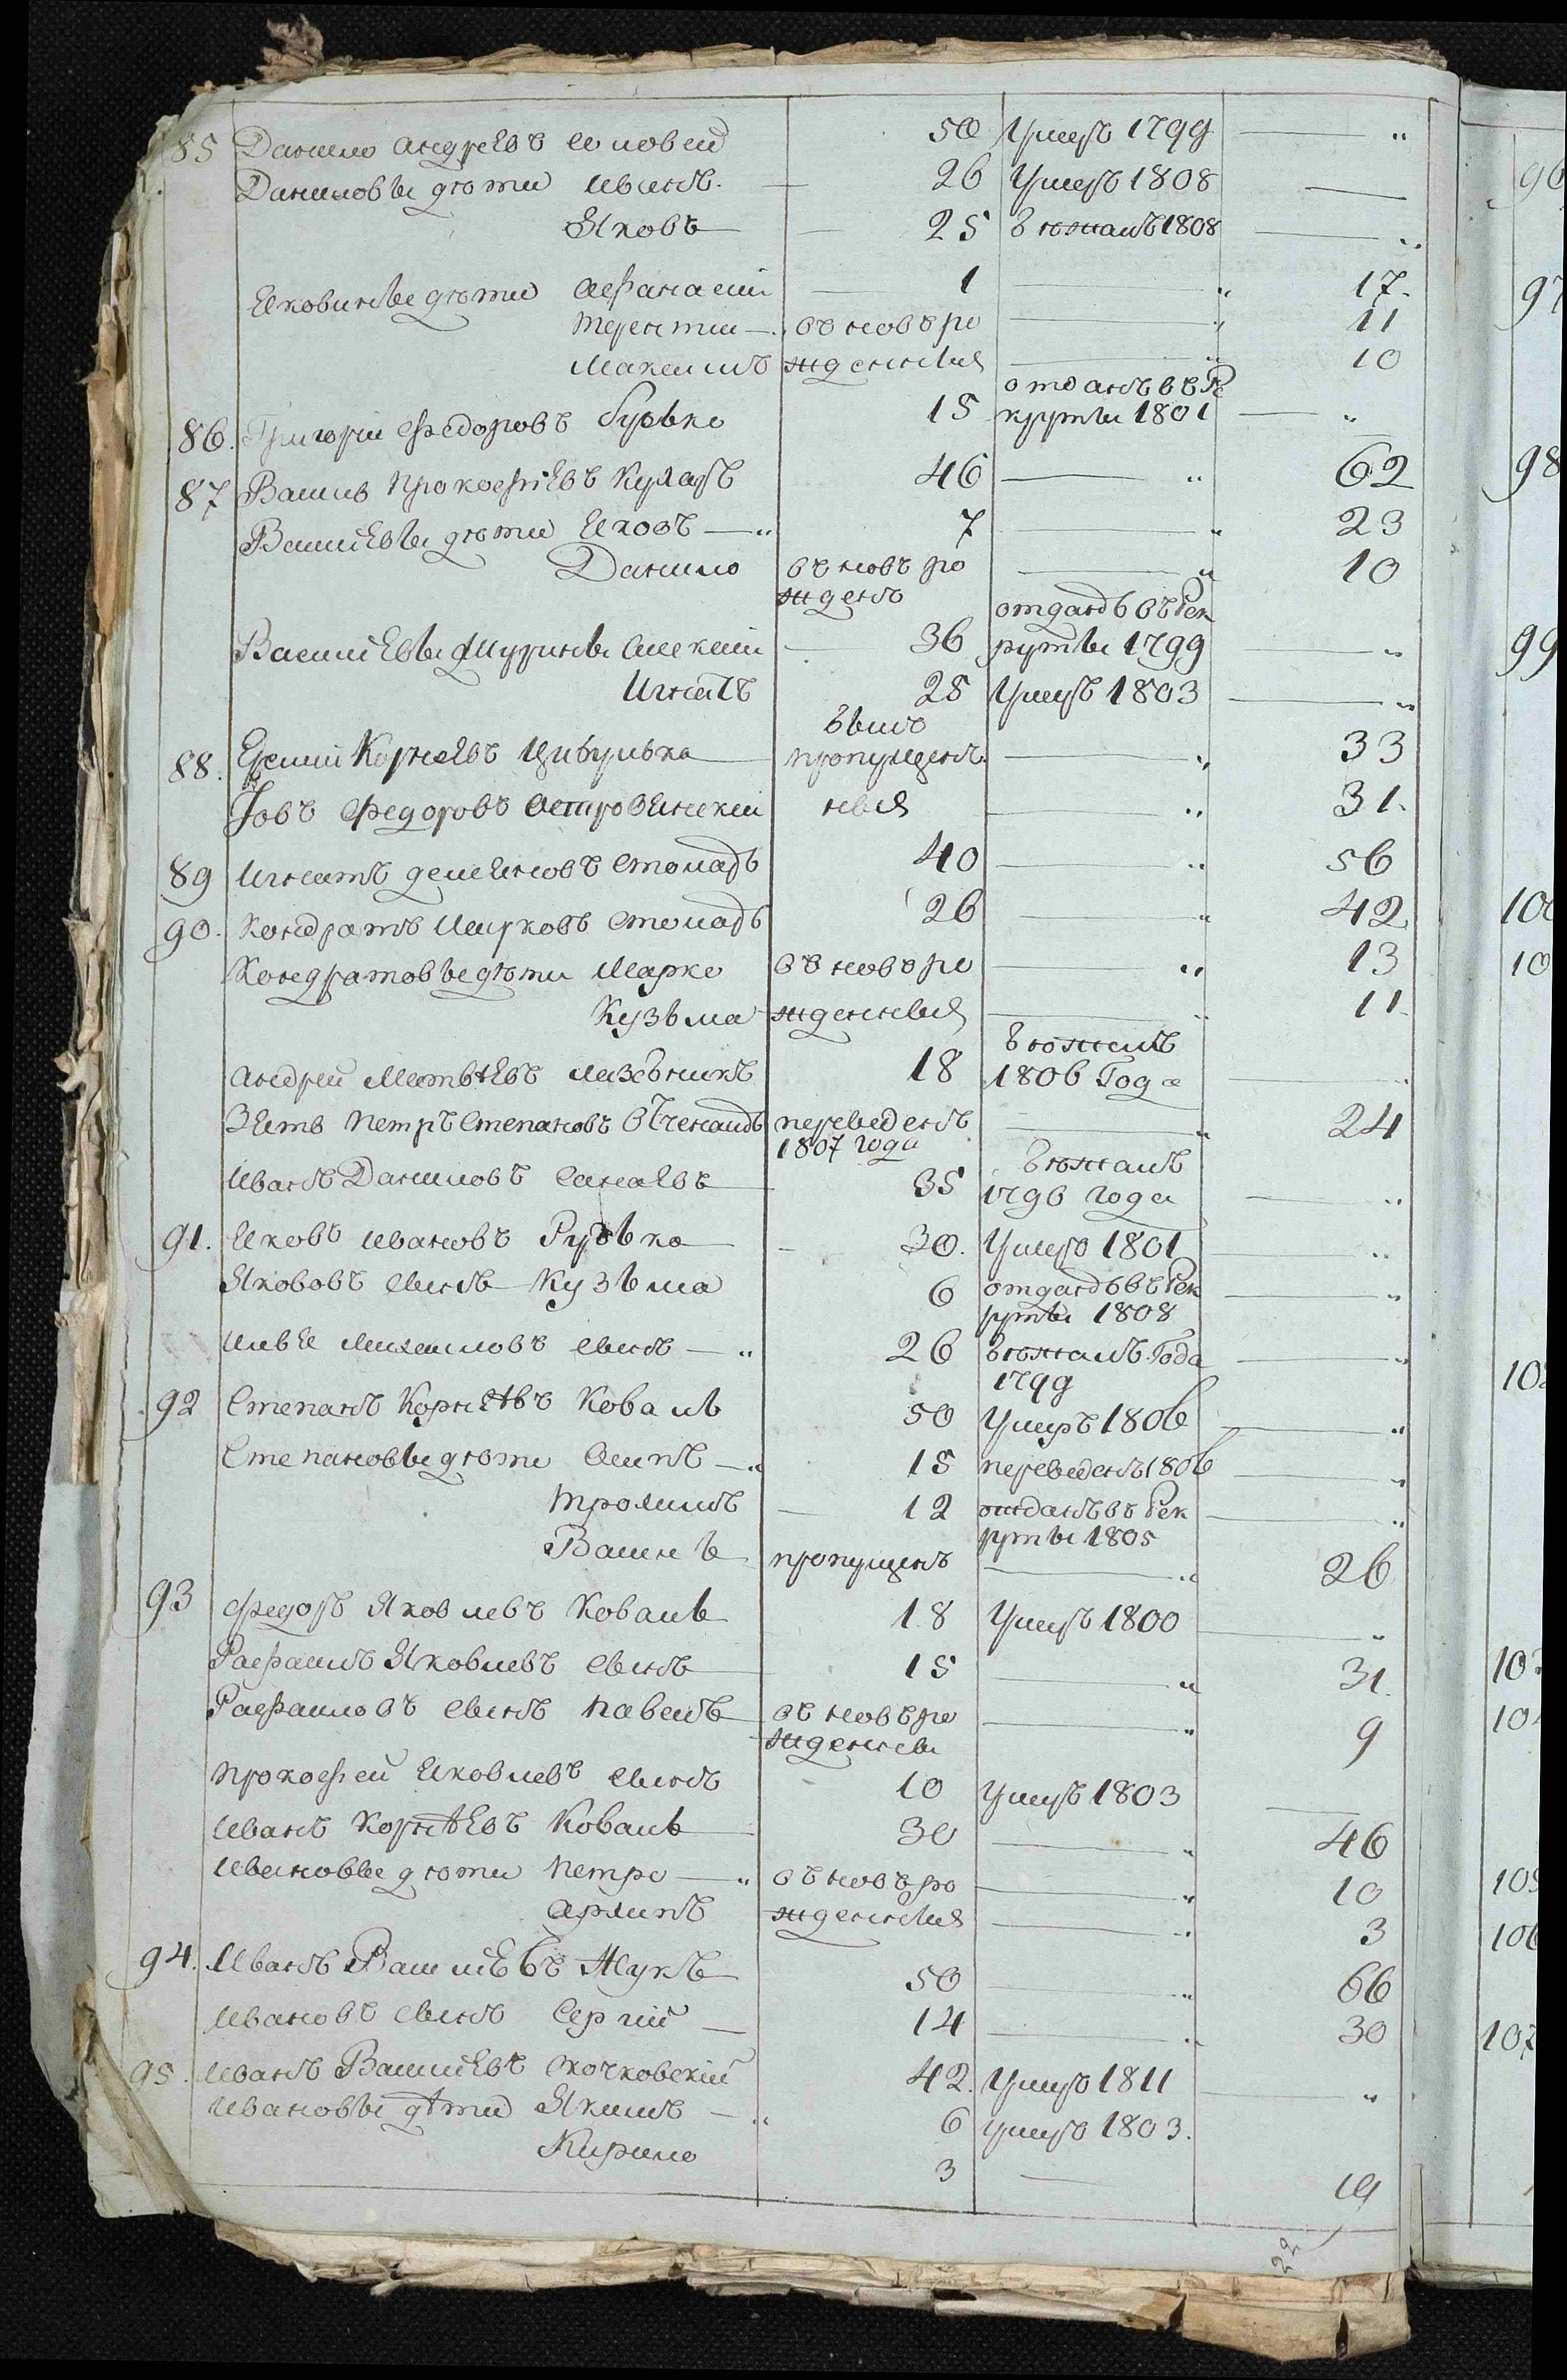 85 Данило Андреевъ Соловей 50 Умеръ 1799
Даниловы дѣти Иванъ 26 Умеръ 1808
Яковъ 25 бѣжалъ 1808
Яковлевы дѣти Афанасий 1 17.
Терентий въ новѣ ро 11
Максимъ жденныя 10
отданъ въ Ре
86. Григорий Федоровъ 15 круты 1801
87 Василь Прокофіевъ 46 62
Васильевы дѣти Яковъ 7 23
Данило въ новѣ ро 10
жденъ
отданъ въ Рек
Васильевы Шурины Алексий 36 руты 1799
Игнатъ 28 Умеръ 1803
были
88. Корнеевъ Цибулька пропущен 33
Іовъ Федоровъ ныя 31.
89 Игнатъ Демяновъ Столяръ 40 56
90. Кондратъ Марковъ Столяръ 26 42
Кондратовы дѣти Марко въ новѣ ро 13
Кузьма жденныя 11
бѣжалъ
Андрей Матвѣевъ 18 1806 Года
Зять Петръ Степановъ переведенъ 24
1807 года
бѣжалъ
Иванъ Даниловъ 35 1796 года
91. Яковъ Ивановъ Рудько 30. Умеръ 1801
Якововъ сынъ Кузьма 6 отданъ въ Рек
руты 1808
Илья Михайловъ сынъ 26 бѣжалъ Года
1799
92 Степанъ Корнѣевъ Коваль 50 Умеръ 1806
Степановы дѣти Осипъ 15 переведенъ 1806
Трохимъ 12 отданъ въ Рек
руты 1805
Василь пропущенъ 26
93 Федоръ Яковлевъ Коваль 18 Умеръ 1800
Рафаилъ Яковлевъ сынъ 15 31.
Рафаиловъ сынъ Павелъ въ новѣ ро 9
ждены
Прокофей Яковлевъ сынъ 10 Умеръ 1803
Иванъ Корнѣевъ Коваль 30 46
Ивановы дѣти Петро въ новѣ ро 10
Архипъ жденныя 3
94. Иванъ Васильевъ Жукъ 50 66
Ивановъ сынъ Сергий 14 30
95. Иванъ Васильевъ 42. Умеръ 1811
Ивановы дѣти Якимъ 6 Умеръ 1803.
Кирило 3 19
22